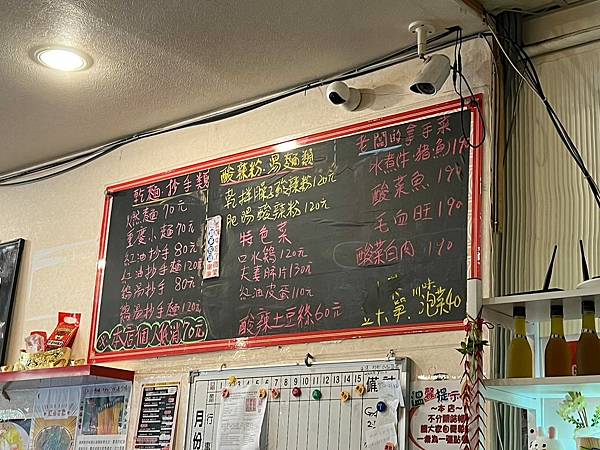 乾麵.抄手類
燃麵70元
重慶小麵70元
紅油抄手80元
紅油抄手麵120元
鷄湯抄手80元
鷄湯抄手麵120元
本店個人低消70元
酸辣粉.湯麵類
乾拌臊子酸辣粉120元
肥腸酸辣粉120元
特色菜
口水鷄120元
夫妻肺片130元
紅油皮蛋110元
酸辣土豆絲60元
老闆的拿手菜
水煮牛.豬.魚190
酸菜魚190
毛血旺190
酸菜白肉190
川味泡菜40
3 4 5 6 7 8 9 10 11 12 13 14 15
備
月份
行
事
溫馨提示
~本店~
不分開結帳